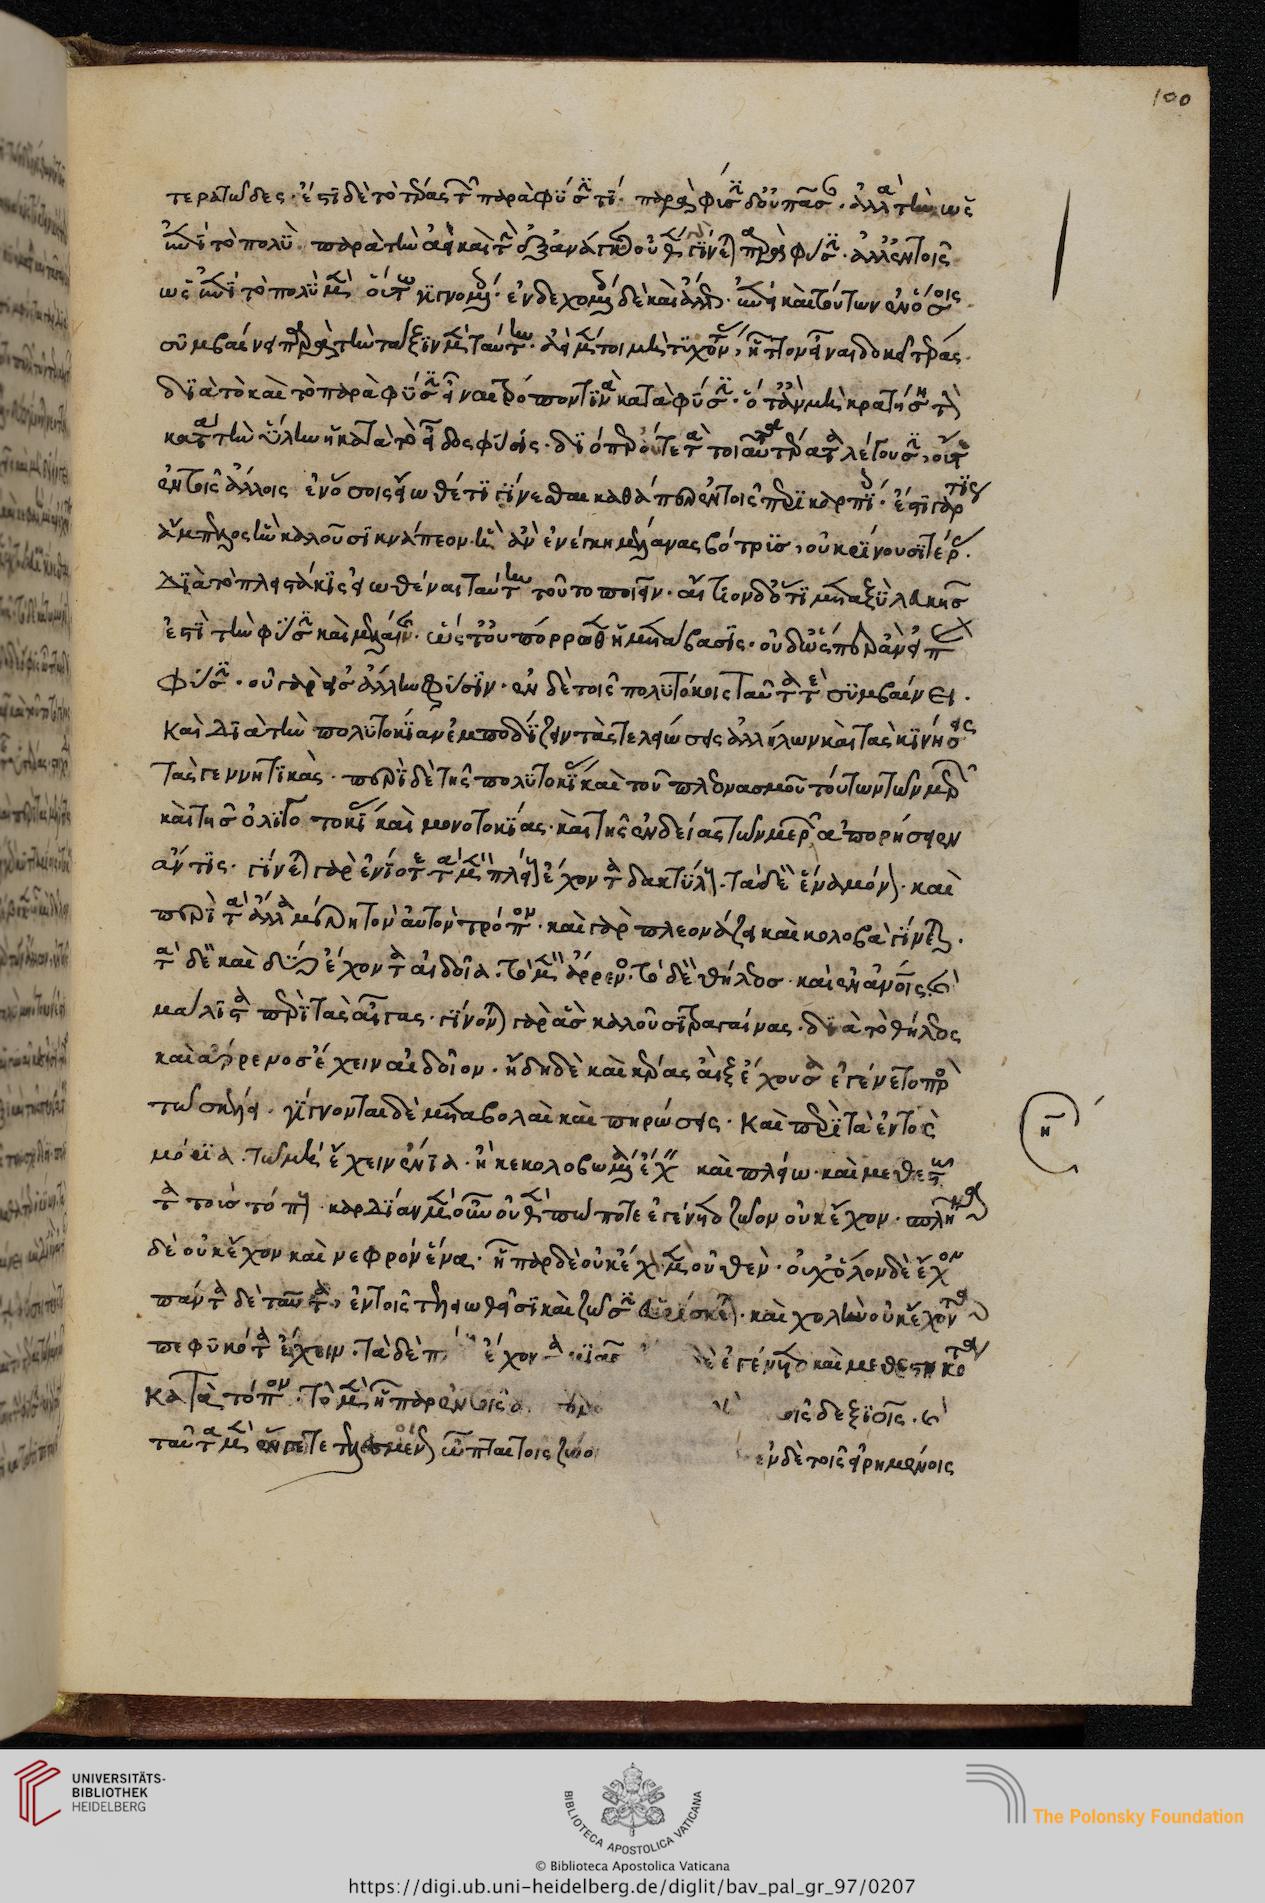 100
τερατῶδες· ἔστι δὲ τὸ τέρας τῶν παρὰ φύσιν τι· παρὰ φύσιν δ' οὐ πᾶσαν· ἀλλὰ τὴν ὡς
ἐπὶ τὸ πολύ· παρὰ τὴν ἀεὶ καὶ τὴν ἐξ ἀνάγκης οὐθὲν γίνεται παρὰ φύσιν· ἀλλ' ἐν τοῖς
ὡς ἐπὶ τὸ πολὺ μὲν οὕτω γιγνομένοις· ἐνδεχομένοις δὲ καὶ ἄλλως· ἐπεὶ καὶ τούτων ἐν ὅσοις
συμβαίνει παρὰ τὴν τάξιν μὲν ταύτην· ἀεὶ μέντοι μὴ τυχόντως, ἧττον εἶναι δοκεῖ τέρας·
διὰ τὸ καὶ τὸ παρὰ φύσιν εἶναι τρόπον τινὰ κατὰ φύσιν· ὅταν μὴ κρατήσῃ τὴν
κατὰ τὴν ὕλην ἡ κατὰ τὸ εἶδος φύσις· διόπερ οὔτε τὰ τοιαῦτα τέρατα λέγουσιν, οὔτ'
ἐν τοῖς ἄλλοις ἐν ὅσοις εἴωθέ τι γίνεσθαι καθάπερ ἐν τοῖς περικαρπίοις· ἔστι γάρ τις
ἄμπελος ἣν καλοῦσι κνάπεον· ἣ ἂν ἐνέγκῃ μέλανας βότρυς, οὐ κρίνουσι τέρας·
διὰ τὸ πλειστάκις εἰωθέναι ταύτην τοῦτο ποιεῖν· αἴτιον δ' ὅτι μεταξὺ λευκῆς
ἐστὶ τὴν φύσιν καὶ μελαίνης· ὥστ' οὐ πόρρωθεν ἡ μετάβασις· οὐδ' ὡσπερανεὶ παρὰ
φύσιν· οὐ γὰρ εἰς ἄλλην φύσιν· ἐν δὲ τοῖς πολυτόκοις ταῦτά τε συμβαίνει·
καὶ διὰ τὴν πολυτοκίαν ἐμποδίζειν τὰς τελειώσεις ἀλλήλων καὶ τὰς κινήσεις
τὰς γεννητικάς· περὶ δὲ τῆς πολυτοκίας καὶ τοῦ πλεονασμοῦ τούτων τῶν μερῶν
καὶ τῆς ὀλιγοτοκίας καὶ μονοτοκίας· καὶ τῆς ἐνδείας τῶν μερῶν ἀπορήσειεν
ἄν τις· γίνεται γὰρ ἐνίοτε τὰ μὲν πλείους ἔχοντα δακτύλους· τὰ δὲ ἕνα μόνον· καὶ
περὶ τὰ ἄλλα μέρη τὸν αὐτὸν τρόπον· καὶ γὰρ πλεονάζει καὶ κολοβὰ γίνεται·
τὰ δὲ καὶ δύο ἔχοντα αἰδοῖα· τὸ μὲν ἄρρενος· τὸ δὲ θήλεος· καὶ ἐν ἀνθρώποις καὶ
μάλιστα περὶ τὰς αἶγας· γίνονται γὰρ ἃς καλοῦσι τραγαίνας· διὰ τὸ θήλεος
καὶ ἄρρενος ἔχειν αἰδοῖον· ἤδη δὲ καὶ κέρας αἲξ ἔχουσα ἐγένετο πρὸς
τῷ σκέλει· γίγνονται δὲ μεταβολαὶ καὶ πηρώσεις· καὶ περὶ τὰ ἐντὸς
μόρια· τῷ μὴ ἔχειν ἔνια· ἢ κεκολοβωμένα ἔχειν καὶ πλείω· καὶ μεθεστῶτα
τοὺς τόπους· καρδίαν μὲν οὖν οὐθὲν πώποτε ἐγένετο ζῷον οὐκ ἔχον· σπλῆνα
δὲ οὐκ ἔχον καὶ νεφρὸν ἕνα· ἧπαρ δὲ οὐκ ἔχον μὲν οὐθέν· οὐχ ὅλον δὲ ἔχον
πάντα δὲ ταῦτα, ἐν τοῖς τελειωθεῖσι καὶ ζῶσιν εὑρίσκεται· καὶ χολὴν οὐκ ἔχοντα
πεφυκότα ἔχειν· τὰ δὲ ἔχοντα ἐγένετο καὶ μεθεστηκότα
κατὰ τόπον· τὸ μὲν ἧπαρ ἐν τοῖς τοῖς δεξιοῖς· καὶ
ταῦτα μὲν ὦπται τοῖς ζῴοις ἐν δὲ τοῖς εἰρημένοις
UNIVERSITÄTS-
BIBLIOTHEK
HEIDELBERG
BIBLIOTECA APOSTOLICA VATICANA
The Polonsky Foundation
© Biblioteca Apostolica Vaticana
https://digi.ub.uni-heidelberg.de/diglit/bav_pal_gr_97/0207